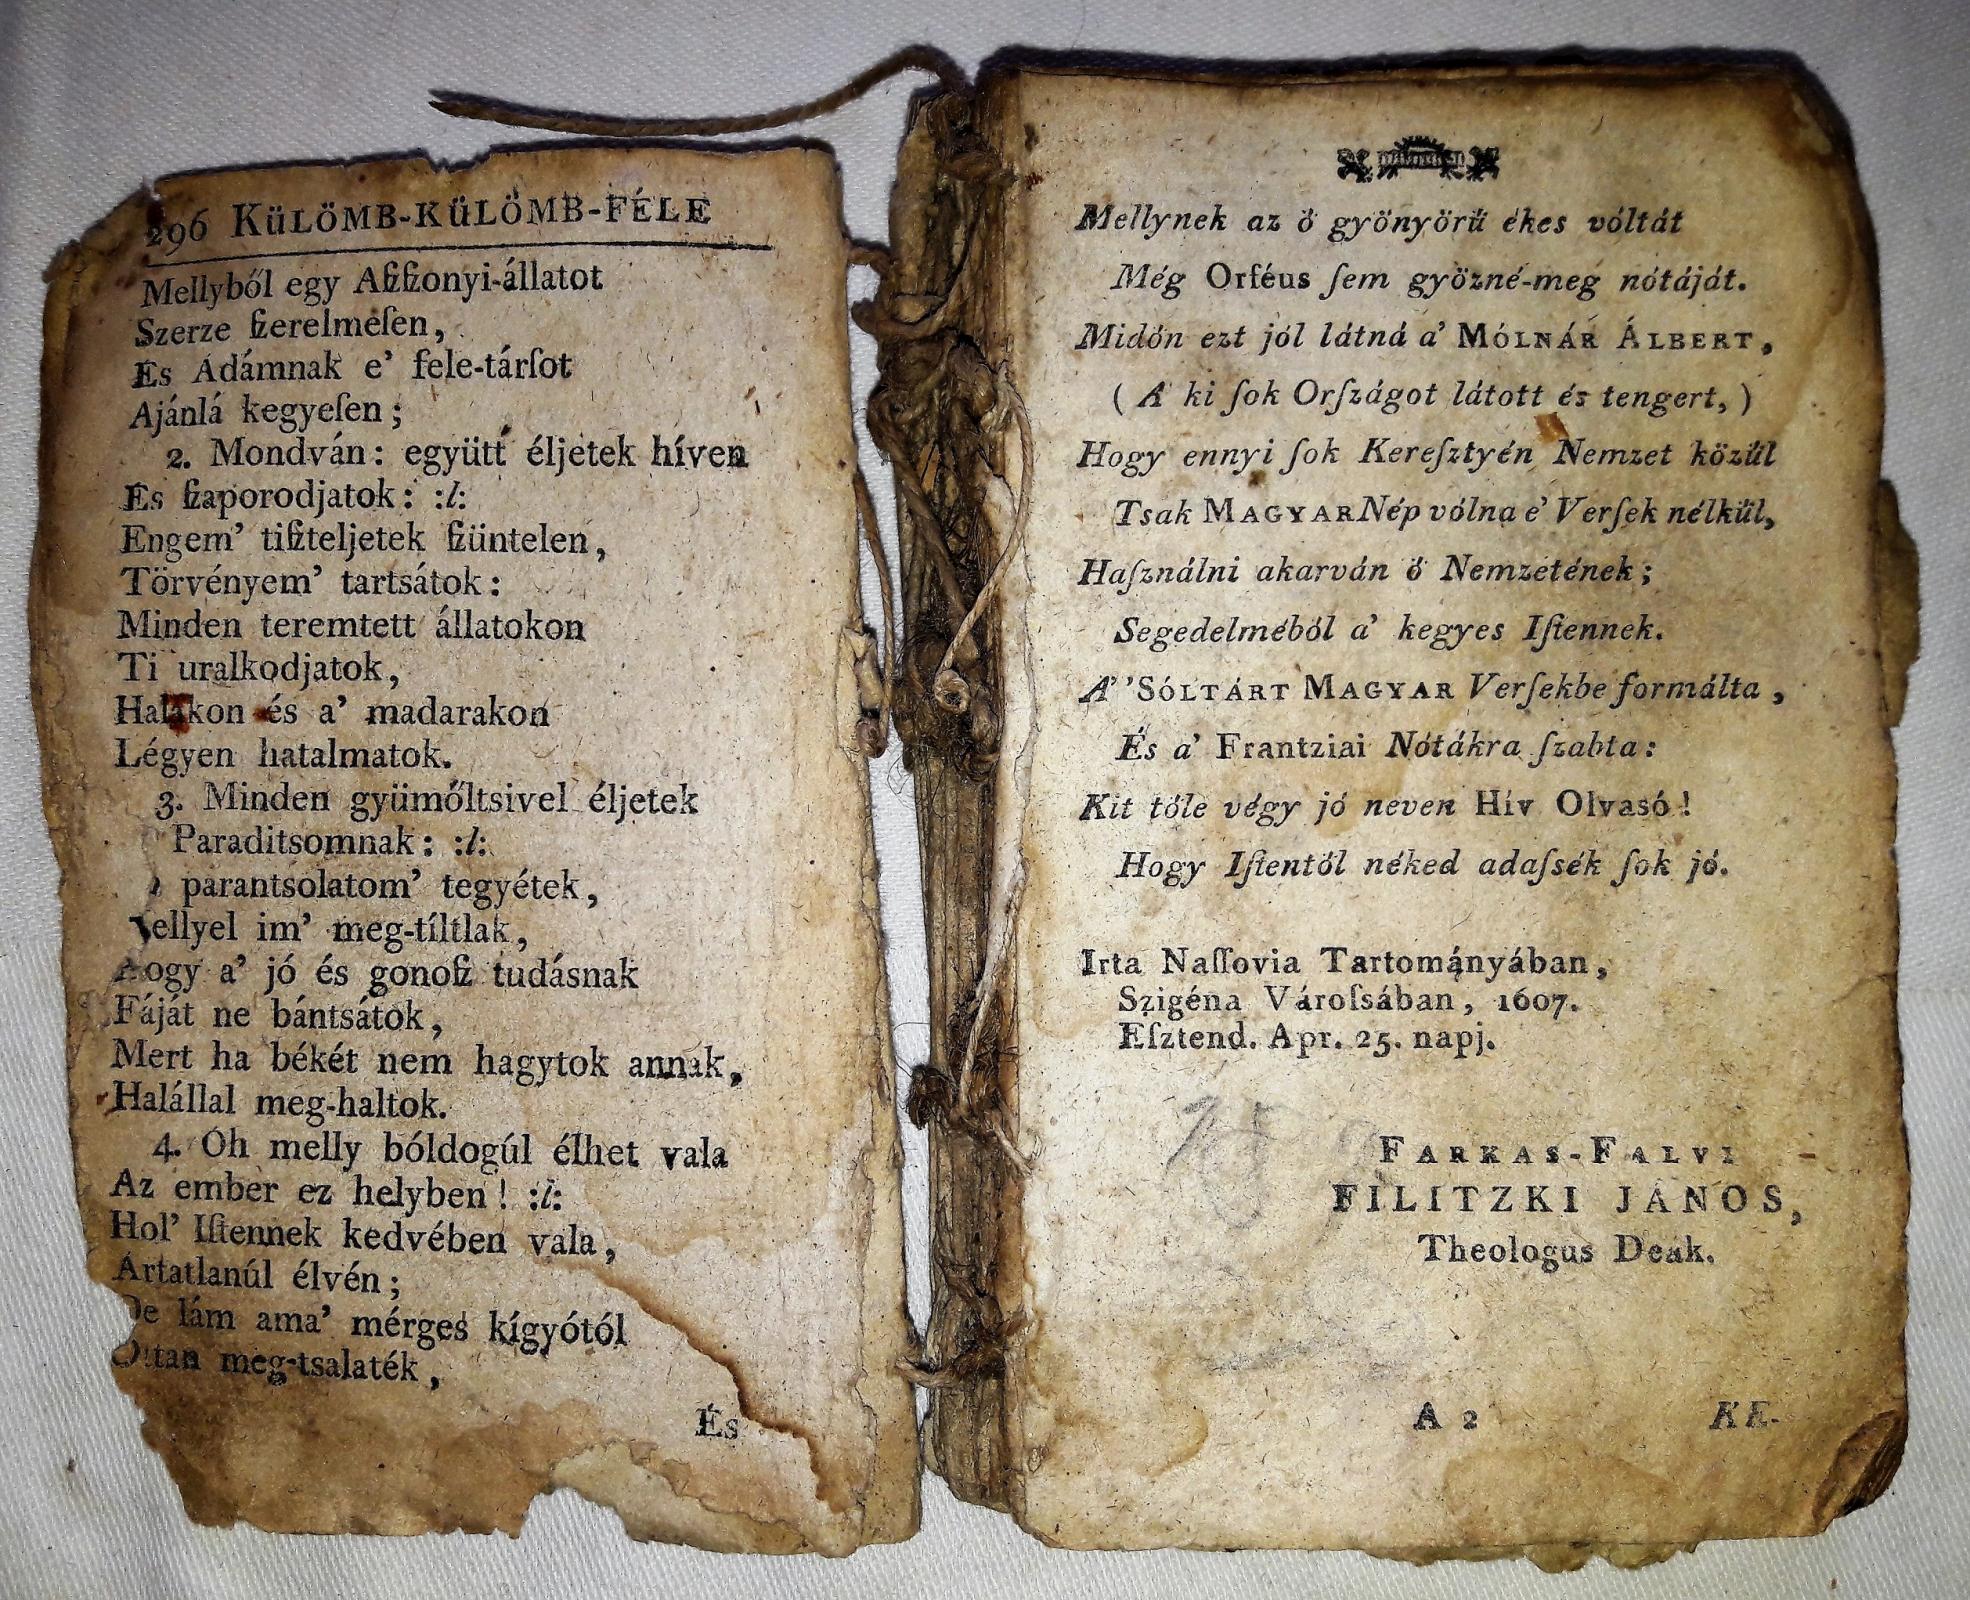 296 KÜLÖMB-KÜLÖMB-FÉLE
Mellyből egy Aſſzonyi-állatot
Szerze ſzerelmeſen,
És Ádámnak e’ fele-tárſot
Ajánlá kegyeſen;
2. Mondván: együtt éljetek híven
És ſzaporodjatok: :l:
Engem’ tiſzteljetek ſzüntelen,
Törvényem’ tartsátok:
Minden teremtett állatokon
Ti uralkodjatok,
Halakon és a’ madarakon
Légyen hatalmatok.
3. Minden gyümőltsivel éljetek
Paraditsomnak: :l:
parantsolatom’ tegyétek,
ellyel im’ meg-tíltlak,
Hogy a’ jó és gonoſz tudásnak
Fáját ne bántsátok,
Mert ha békét nem hagytok annak,
Halállal meg-haltok.
4. Oh melly bóldogúl élhet vala
Az ember ez helyben! :l:
Hol’ Iſtennek kedvében vala,
Ártatlanúl élvén;
De lám ama’ mérges kígyótól
Ottan meg-tsalaték,
És
Mellynek az ő gyönyörű ékes vóltát
Még Orféus ſem gyözné-meg nótáját.
Midőn ezt jól látná a’ MÓLNÁR ÁLBERT,
(A’ ki ſok Orſzágot látott és tengert,)
Hogy ennyi ſok Kereſztyén Nemzet közűl
Tsak MAGYAR Nép vólna e’ Verſek nélkül,
Haſználni akarván ő Nemzetének;
Segedelméből a’ kegyes Iſtennek.
A’ ’SÓLTÁRT MAGYAR Verſekbe formálta,
És a’ Frantziai Nótákra ſzabta:
Kit tőle végy jó neven Hív Olvasó!
Hogy Iſtentől néked adaſsék ſok jó.
Irta Naſſovia Tartományában,
Szigéna Várofsában, 1607.
Eſztend. Apr. 25. napj.
FARKAS-FALVI
FILITZKI JÁNOS,
Theologus Deak.
A 2
KE-